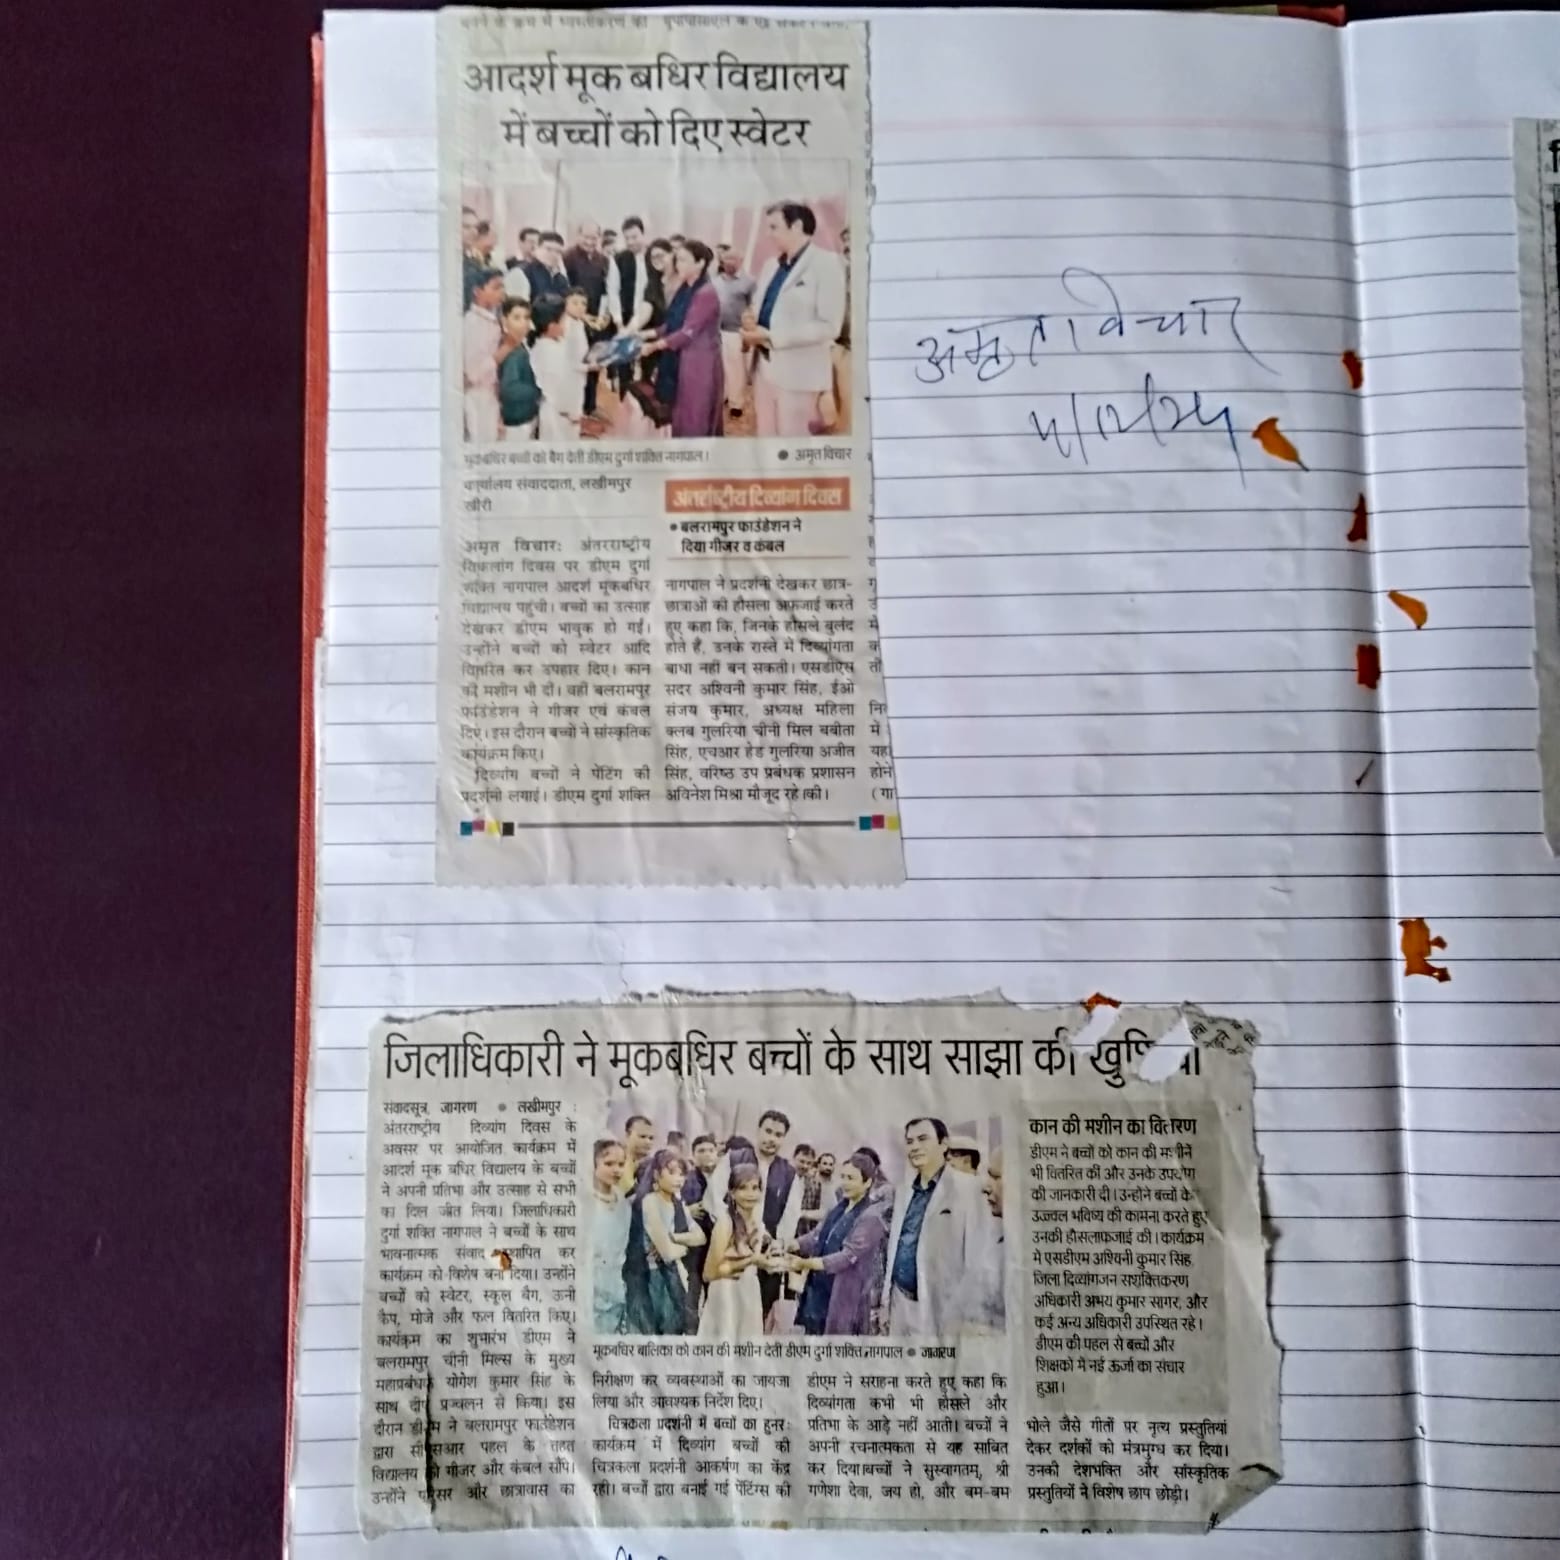 आदर्श मूक बधिर विद्यालय
में बच्चों को दिए स्वेटर
मूकबधिर बच्चों को बैग देती डीएम दुर्गा शक्ति नागपाल। ● अमृत विचार
कार्यालय संवाददाता, लखीमपुर
खीरी
अमृत विचारः अंतरराष्ट्रीय
विकलांग दिवस पर डीएम दुर्गा
शक्ति नागपाल आदर्श मूकबधिर
विद्यालय पहुंची। बच्चों का उत्साह
देखकर डीएम भावुक हो गईं।
उन्होंने बच्चों को स्वेटर आदि
वितरित कर उपहार दिए। कान
की मशीन भी दी। वहीं बलरामपुर
फाउंडेशन ने गीजर एवं कंबल
दिए। इस दौरान बच्चों ने सांस्कृतिक
कार्यक्रम किए।
दिव्यांग बच्चों ने पेंटिंग की
प्रदर्शनी लगाई। डीएम दुर्गा शक्ति
अंतर्राष्ट्रीय दिव्यांग दिवस
● बलरामपुर फाउंडेशन ने
दिया गीजर व कंबल
नागपाल ने प्रदर्शनी देखकर छात्र-
छात्राओं की हौसला अफजाई करते
हुए कहा कि, जिनके हौसले बुलंद
होते हैं, उनके रास्ते में दिव्यांगता
बाधा नहीं बन सकती। एसडीएम
सदर अश्विनी कुमार सिंह, ईओ
संजय कुमार, अध्यक्ष महिला
क्लब गुलरिया चीनी मिल बबीता
सिंह, एचआर हेड गुलरिया अजीत
सिंह, वरिष्ठ उप प्रबंधक प्रशासन
अविनेश मिश्रा मौजूद रहे।की।
में
यह
होने
(गा
अमृत विचार
जिलाधिकारी ने मूकबधिर बच्चों के साथ साझा कीं
संवादसूत्र, जागरण ● लखीमपुर :
अंतरराष्ट्रीय दिव्यांग दिवस के
अवसर पर आयोजित कार्यक्रम में
आदर्श मूक बधिर विद्यालय के बच्चों
ने अपनी प्रतिभा और उत्साह से सभी
का दिल जीत लिया। जिलाधिकारी
दुर्गा शक्ति नागपाल ने बच्चों के साथ
भावनात्मक संवाद स्थापित कर
कार्यक्रम को विशेष बना दिया। उन्होंने
बच्चों को स्वेटर, स्कूल बैग, ऊनी
कैप, मोजे और फल वितरित किए।
कार्यक्रम का शुभारंभ डीएम ने
बलरामपुर चीनी मिल्स के मुख्य
महाप्रबंधक योगेश कुमार सिंह के
साथ दीप प्रज्वलन से किया। इस
दौरान डीएम ने बलरामपुर फाउंडेशन
द्वारा सीएसआर पहल के तहत
विद्यालय को गीजर और कंबल सौंपे।
उन्होंने परिसर और छात्रावास का
मूकबधिर बालिका को कान की मशीन देती डीएम दुर्गा शक्ति नागपाल ● जागरण
निरीक्षण कर व्यवस्थाओं का जायजा
लिया और आवश्यक निर्देश दिए।
चित्रकला प्रदर्शनी में बच्चों का हुनरः
कार्यक्रम में दिव्यांग बच्चों की
चित्रकला प्रदर्शनी आकर्षण का केंद्र
रही। बच्चों द्वारा बनाई गई पेंटिंग्स की
डीएम ने सराहना करते हुए कहा कि
दिव्यांगता कभी भी हौसले और
प्रतिभा के आड़े नहीं आती। बच्चों ने
अपनी रचनात्मकता से यह साबित
कर दिया।बच्चों ने सुस्वागतम्, श्री
गणेशा देवा, जय हो, और बम-बम
कान की मशीन का वितरण
डीएम ने बच्चों को कान की मशीनें
भी वितरित कीं और उनके उपयोग
की जानकारी दी। उन्होंने बच्चों के
उज्ज्वल भविष्य की कामना करते हुए
उनकी हौसलाफजाई की। कार्यक्रम
में एसडीएम अश्विनी कुमार सिंह,
जिला दिव्यांगजन सशक्तिकरण
अधिकारी अभय कुमार सागर, और
कई अन्य अधिकारी उपस्थित रहे।
डीएम की पहल से बच्चों और
शिक्षकों में नई ऊर्जा का संचार
हुआ।
भोले जैसे गीतों पर नृत्य प्रस्तुतियां
देकर दर्शकों को मंत्रमुग्ध कर दिया।
उनकी देशभक्ति और सांस्कृतिक
प्रस्तुतियों ने विशेष छाप छोड़ी।